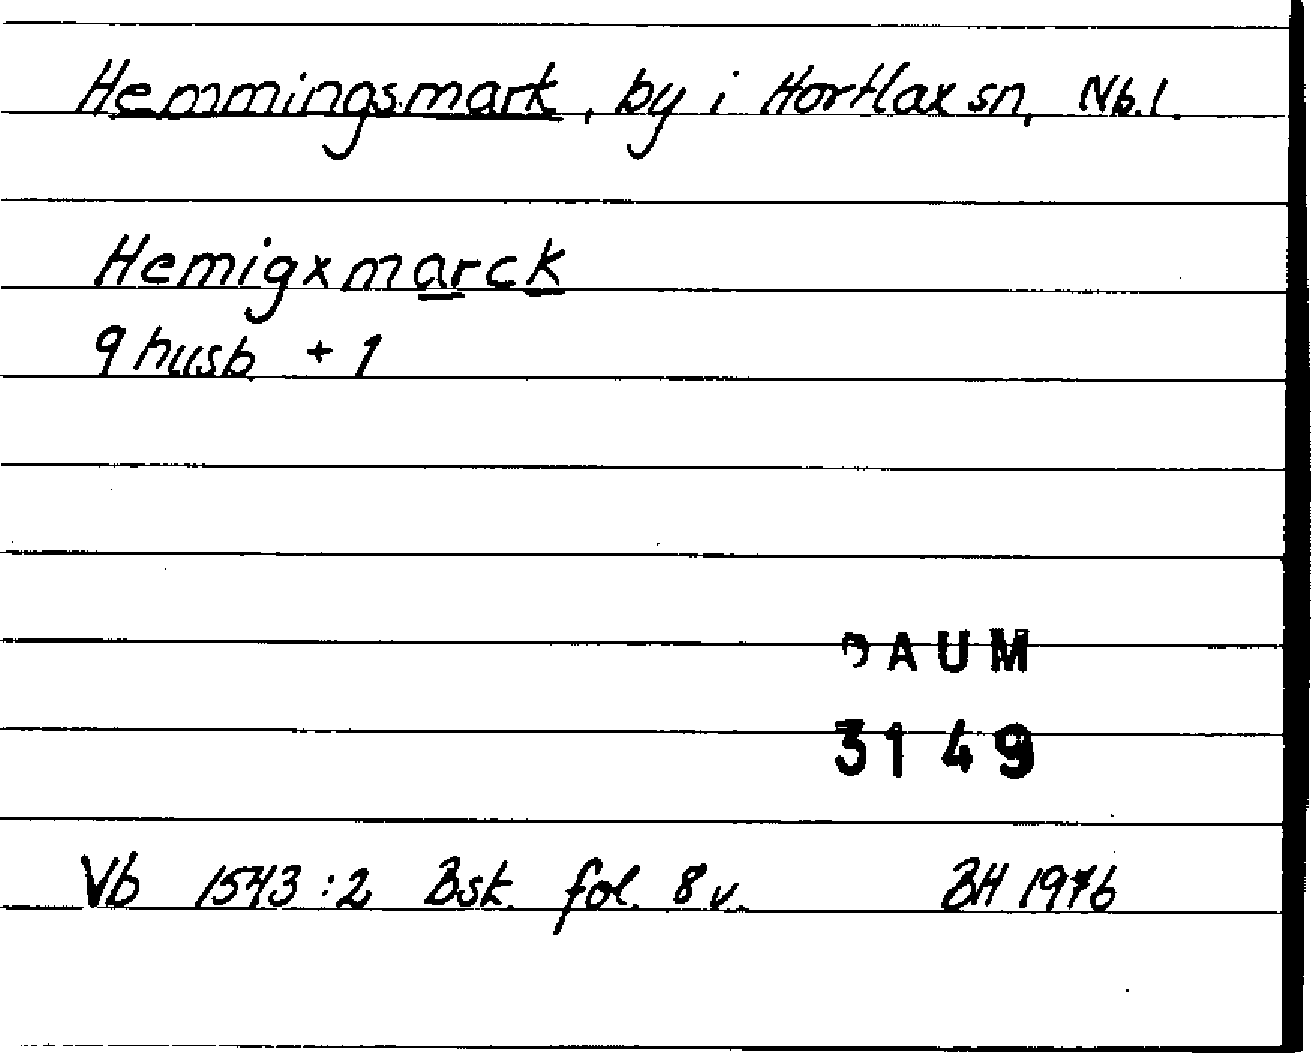 Hemmingsmark, by i Hortlax sn, Nb.l.
Hemigxmarck
9 husb. + 1
DAUM
3149
Vb 1543:2 Bsk. fol. 8 v. BH 1976